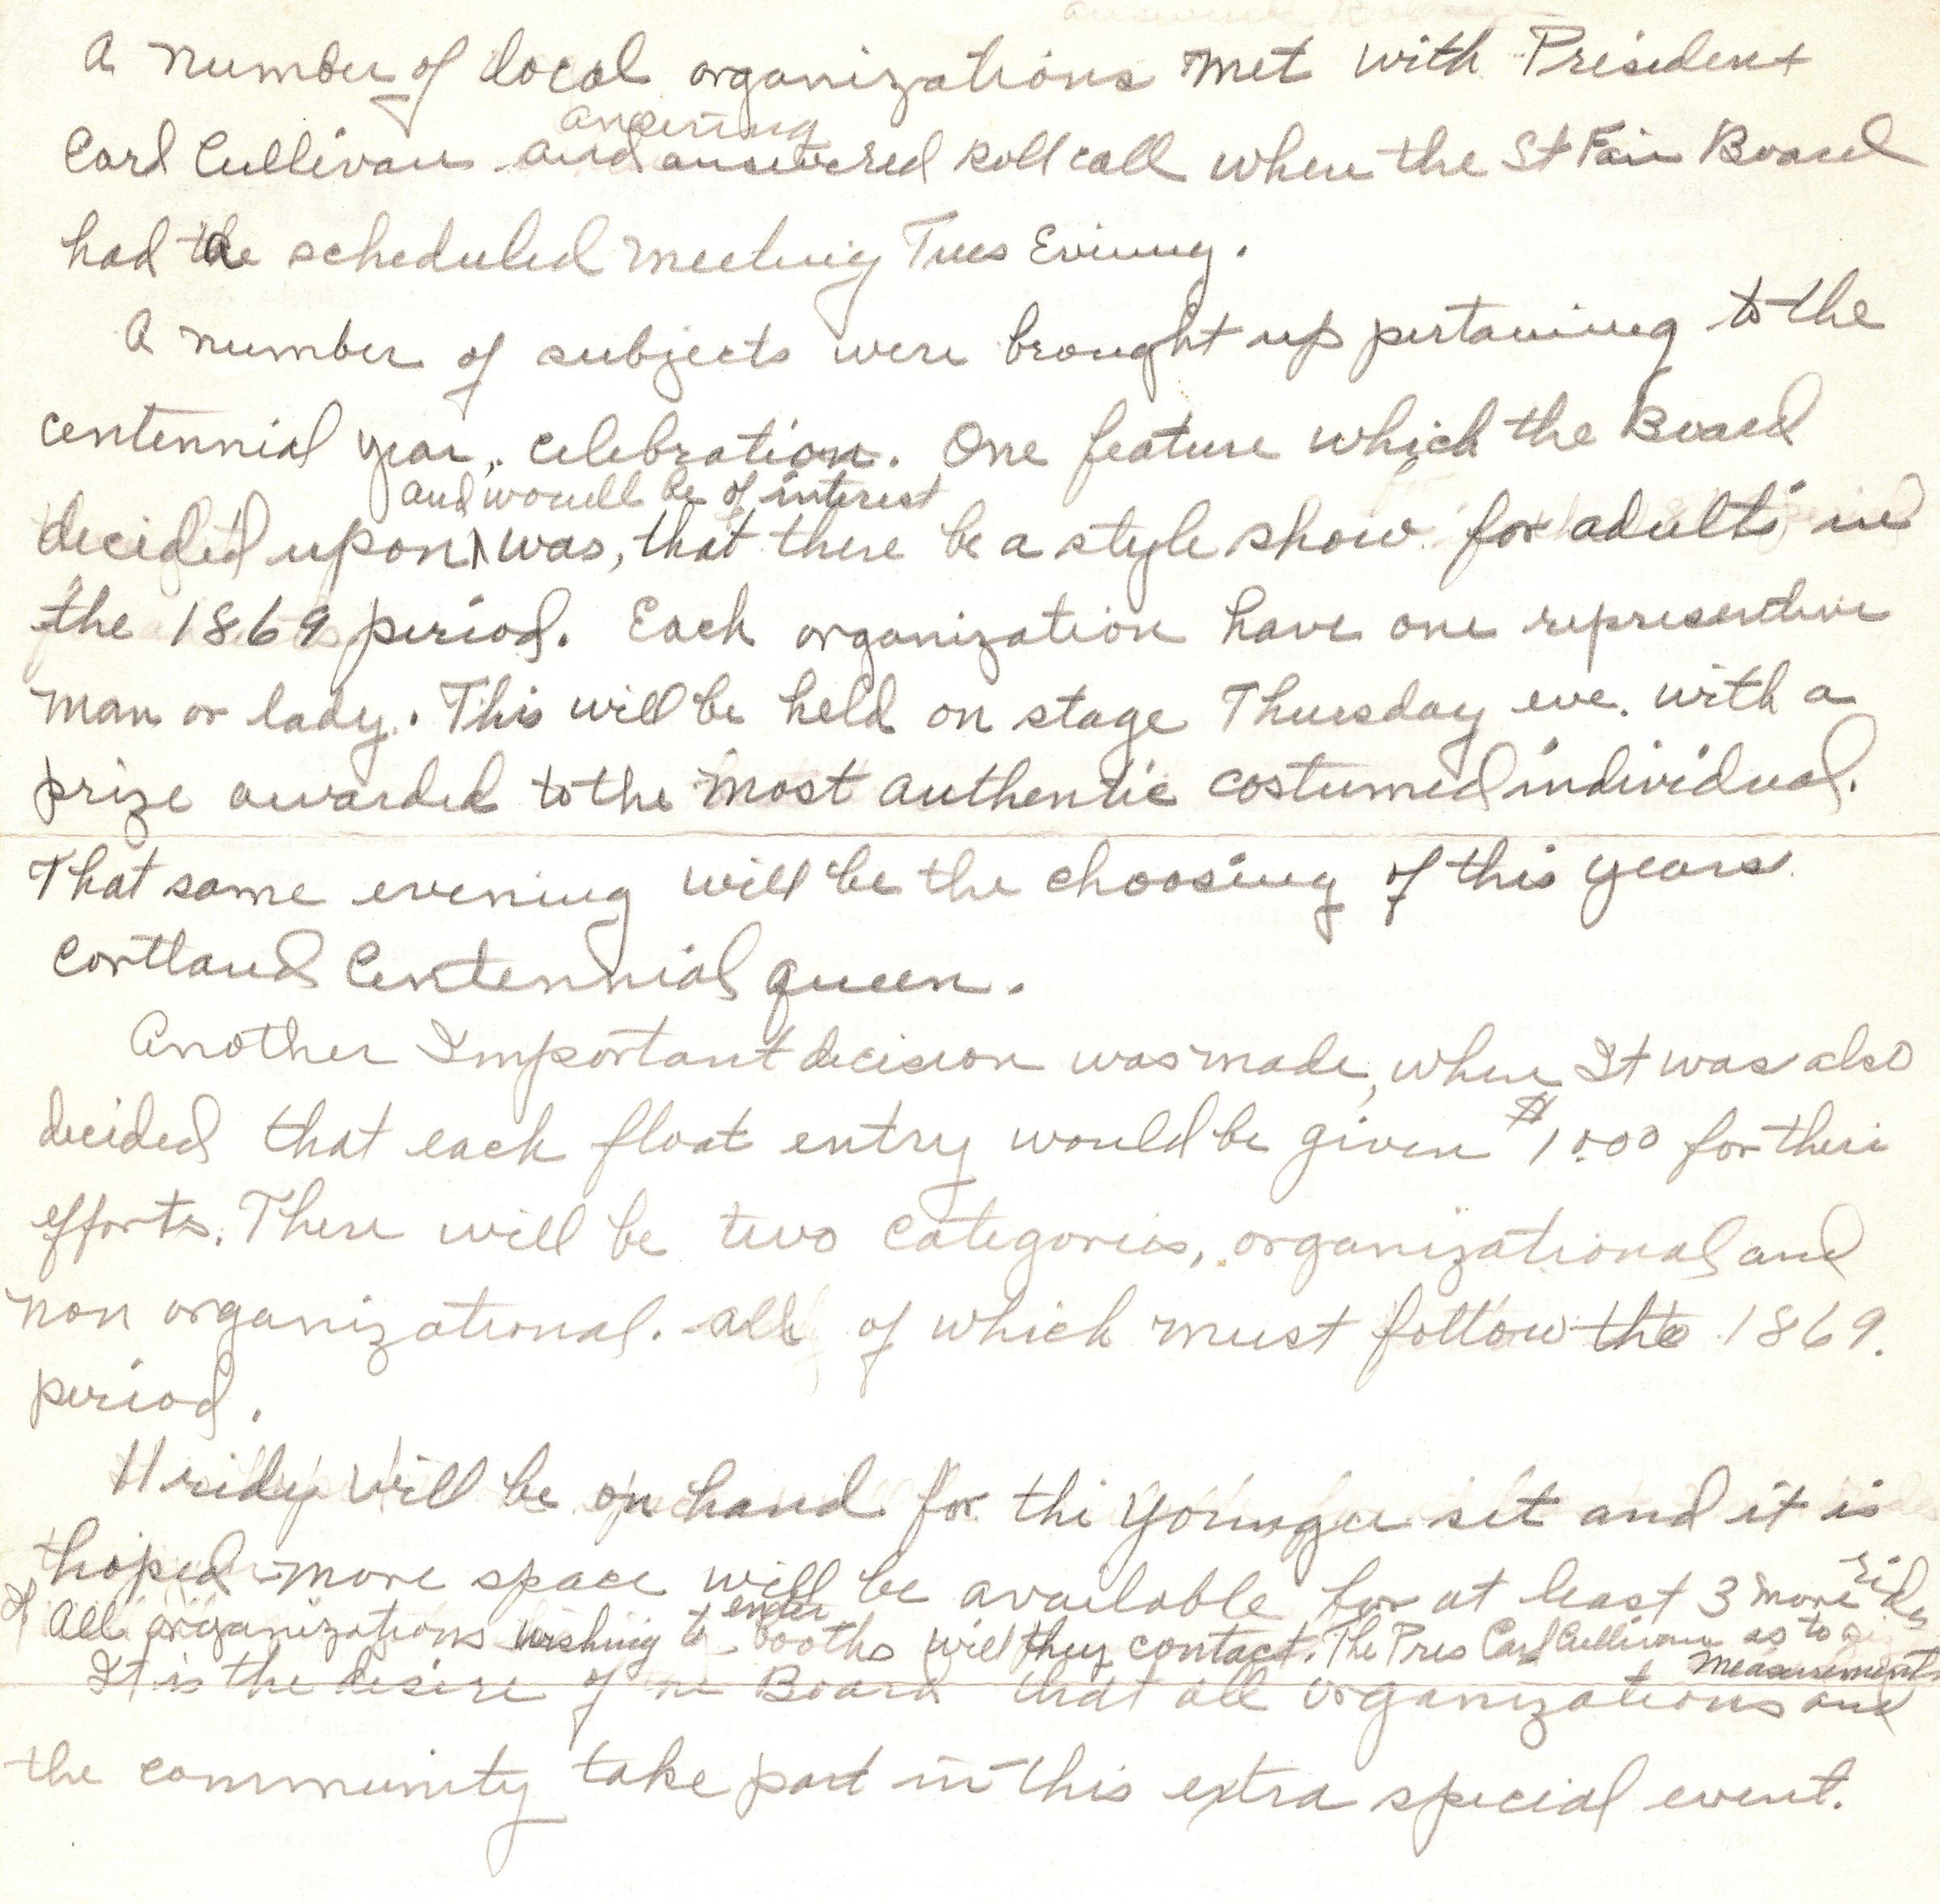 A number of local organizations met with President
ansering
Carl Cullivan and answered roll call when the St Fair Board
had the scheduled meeting Tues Evining.
A number of subjects were brought up pertaining to the
centennial year, celebration. One feature which the Board
and would be of interest
decided upon was, that there be a style show for adults in
the 1869 period. Each organization have one representive
man or lady. This will be held on stage Thursday eve. with a
prize awarded to the most authentic costumed individual.
That same evening will be the choosing of this years
Cortland Centennial queen.
Another Important decision was made, when It was also
decided that each float entry would be given $10.00 for their
efforts. There will be two categories, organizational and
non organizational. all of which must follow the 1869.
period.
will be on hand for the younger set and it is
hoped more space will be available for at least 3 more rides
All organizations wishing to enter booths will they contact. The Pres Carl Cullivan as to
measurements
It is the desire of the Board that all organizations and
the community take part in this extra special event.